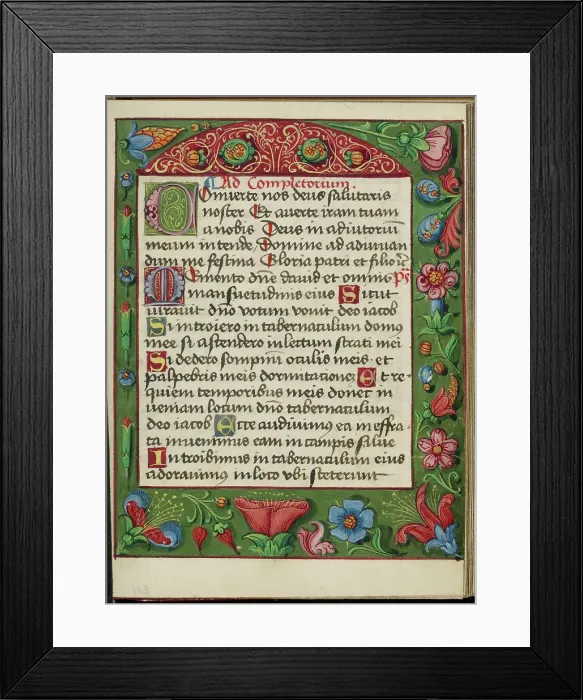 Ad Completorium.
Converte nos deus salutaris
noster Et averte iram tuam
a nobis Deus in adiutoriū
meum intende Domine ad adiuvan
dum me festina Gloria patri et filio
Memento dn̄e david et omnis ps̄
mansuetudinis eius Sicut
iuravit dn̄o votum vovit deo iacob
Si introiero in tabernaculum domus
mee si ascendero in lectum strati mei
Si dedero sompnū oculis meis et
palpebris meis dormitationez Et re
quiem temporibus meis donec in
veniam locum dn̄o tabernaculum
deo iacob Ecce audivimus ea in effra
ta invenimus eam in campis silve
Introibimus in tabernaculum eius
adoravimus in loco ubi steterunt